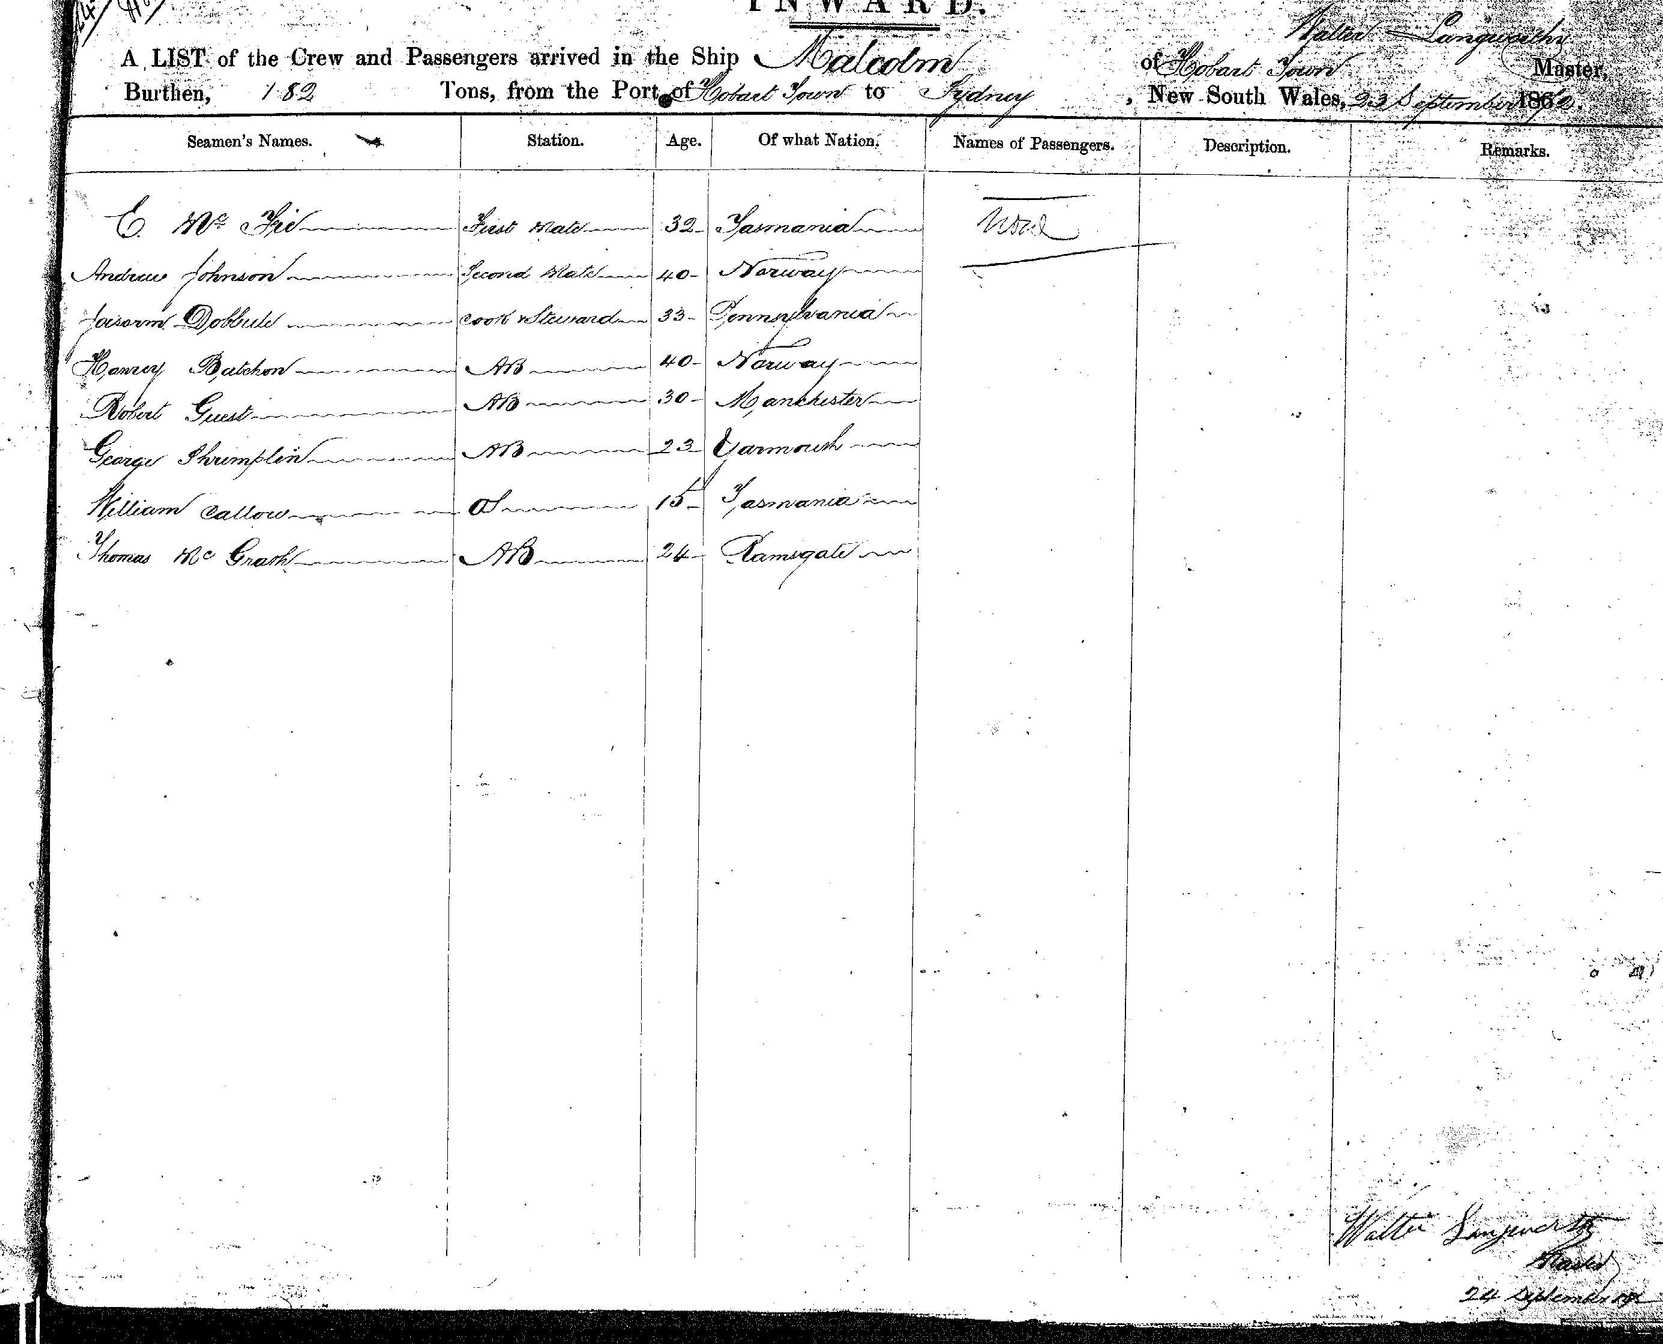 INWARD.
Walter Langworthy
A LIST of the Crew and Passengers arrived in the Ship Malcolm of Hobart Town Master,
Burthen, 182 Tons, from the Port of Hobart Town to Sydney, New South Wales, 23 September 186
Seamen's Names. Station. Age. Of what Nation. Names of Passengers. Description. Remarks.
E. Mc Fie First Mate 32 Tasmania None
Andrew Johnson Second Mate 40 Norway
Dobbule Cook & Steward 33 Pennsylvania
Hanrey Batchon AB 40 Norway
Robert Guest AB 30 Manchester
George Shrimplin AB 23 Yarmouth
William Callow OS 15 Tasmania
Thomas Mc Grath AB 24 Ramsgate
Walter Langworthy
Master
24 September